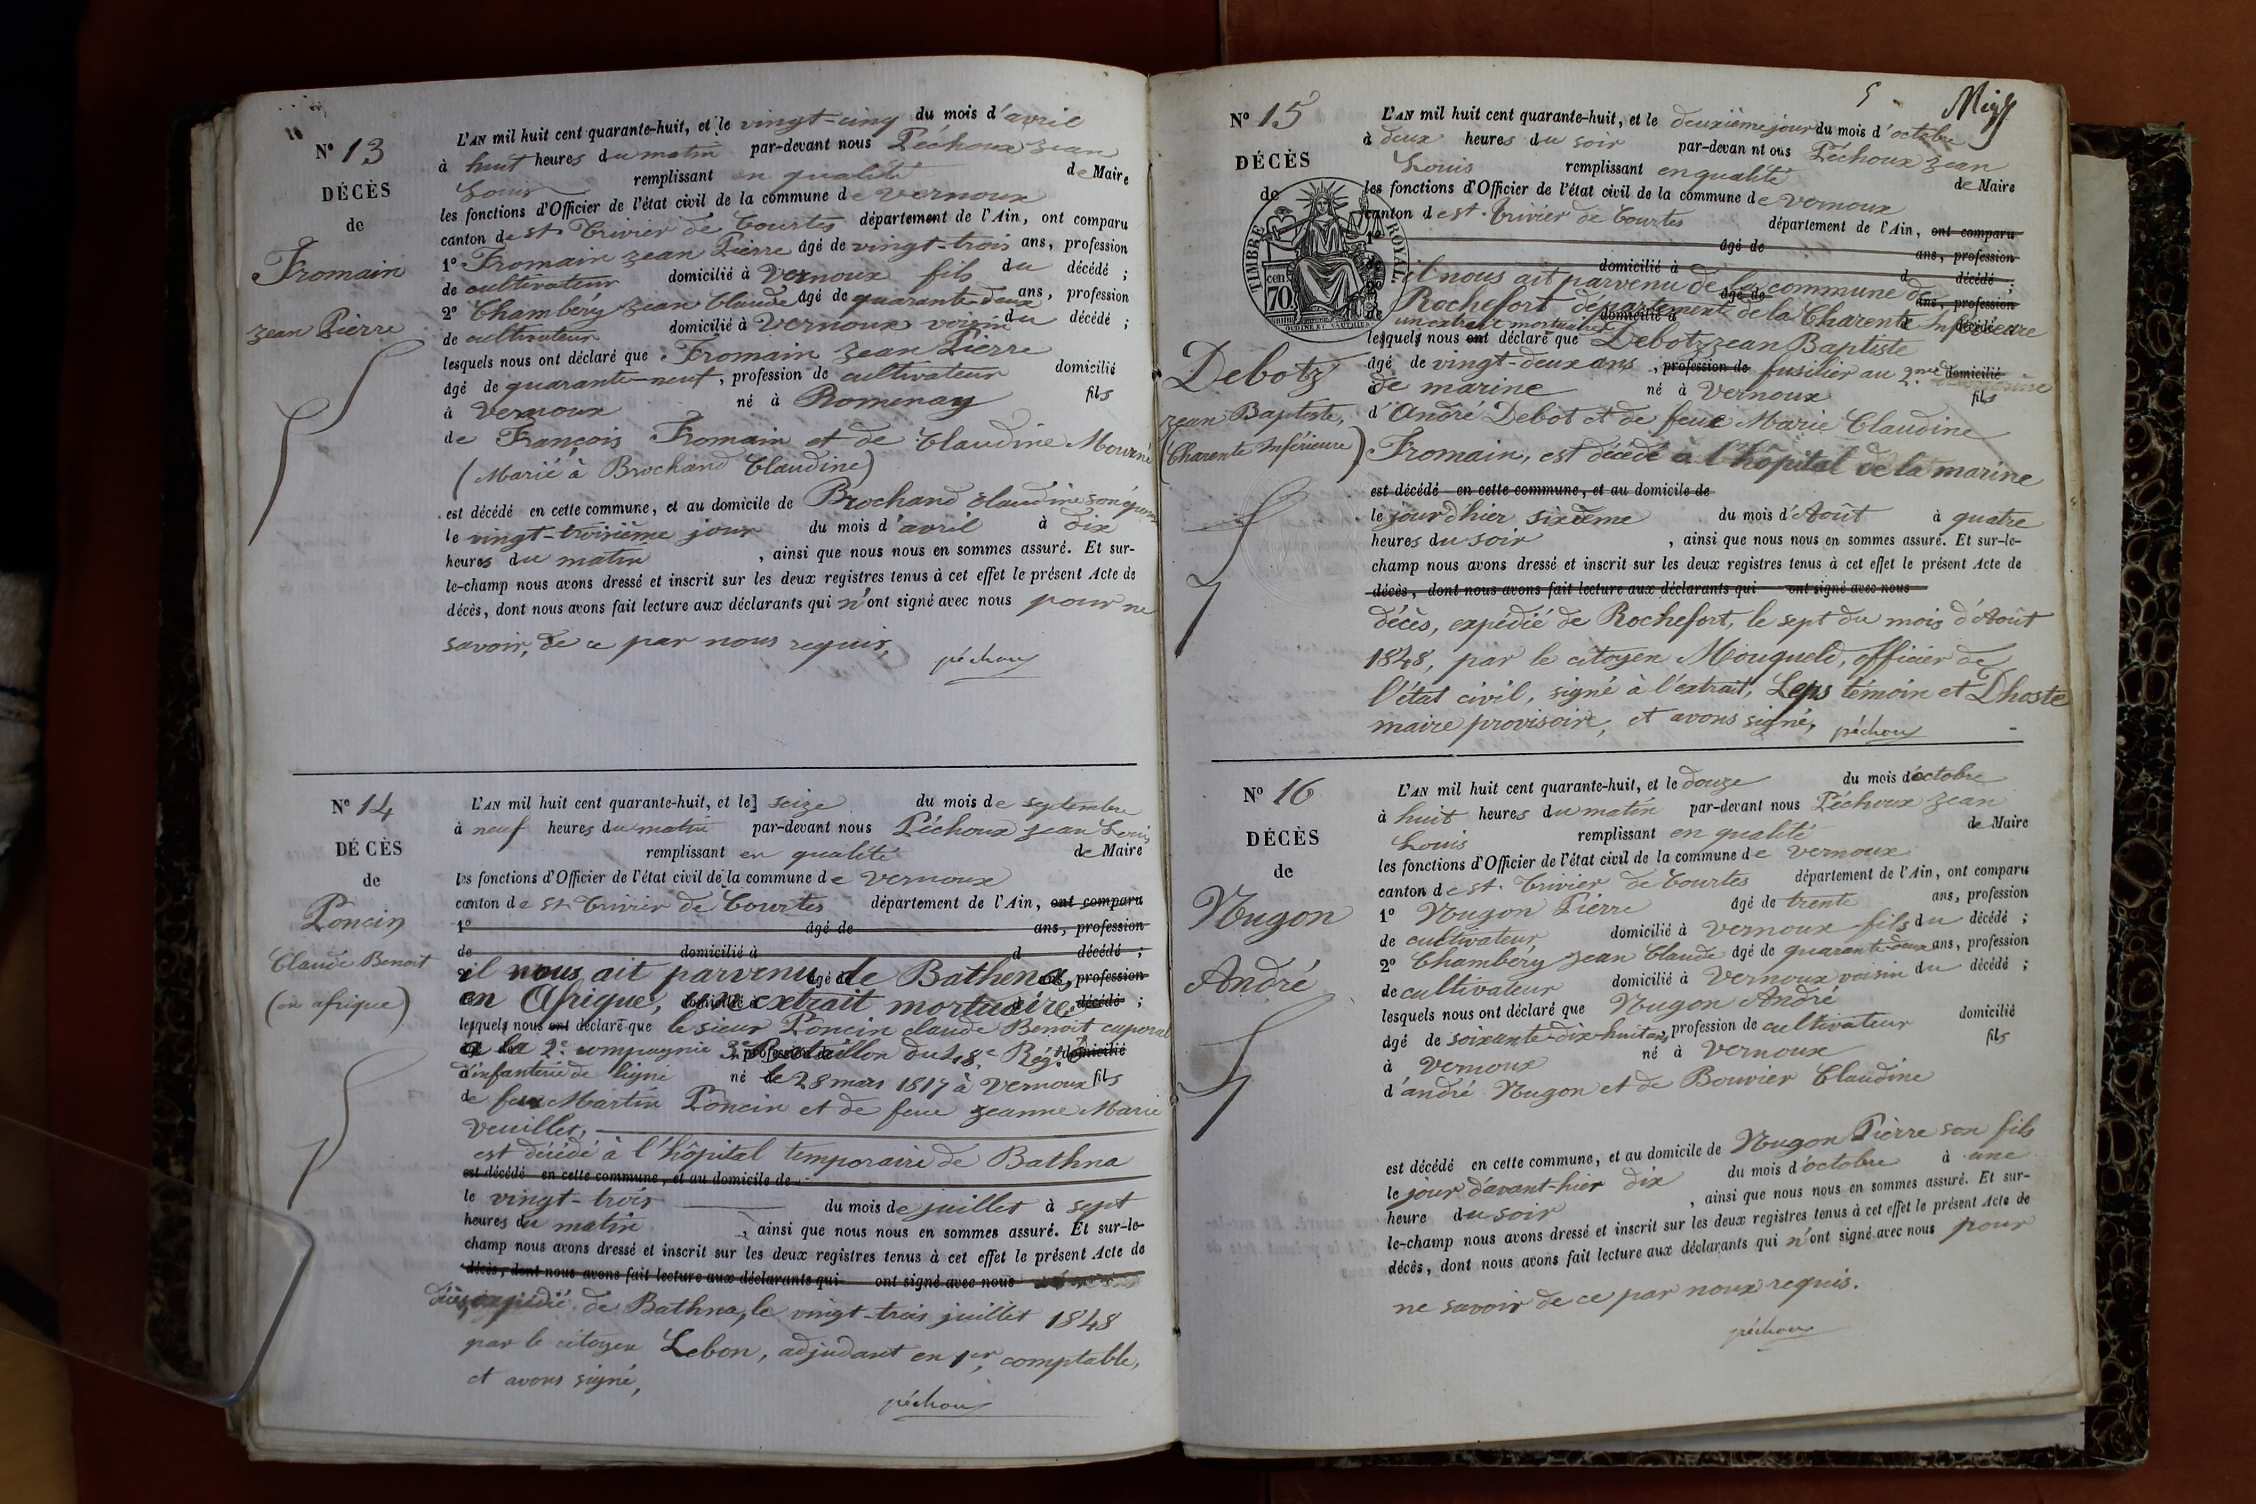 Nº 13
DÉCÈS
de
Fromain
Jean Pierre
L'AN mil huit cent quarante-huit, et le vingt-cinq du mois d'avril
à huit heures du matin par-devant nous Péchoux Jean
Louis remplissant en qualité de Maire
les fonctions d'Officier de l'état civil de la commune de Vernoux
canton de St Trivier de Courtes département de l'Ain, ont comparu
1º Fromain Jean Pierre âgé de vingt-trois ans, profession
de cultivateur domicilié à Vernoux fils du décédé ;
2º Chambéry Jean Claude âgé de quarante-deux ans, profession
de cultivateur domicilié à Vernoux voisin du décédé ;
lesquels nous ont déclaré que Fromain Jean Pierre
âgé de quarante-neuf, profession de cultivateur domicilié
à Vernoux né à Romenay fils
de François Fromain et de Claudine Mourné
(Marié à Brochand Claudine)
est décédé en cette commune, et au domicile de Brochand Claudine son
le vingt-troisième jour du mois d'avril à dix
heures du matin, ainsi que nous nous en sommes assuré. Et sur-
le-champ nous avons dressé et inscrit sur les deux registres tenus à cet effet le présent Acte de
décès, dont nous avons fait lecture aux déclarants qui n'ont signé avec nous pour ne
savoir, de ce par nous requis,
péchoux
Nº 14
DÉCÈS
de
Poncin
Claude Benoit
(en afrique)
L'AN mil huit cent quarante-huit, et le seize du mois de septembre
à neuf heures du matin par-devant nous Péchoux Jean Louis
remplissant en qualité de Maire
les fonctions d'Officier de l'état civil de la commune de Vernoux
canton de St Trivier de Courtes département de l'Ain, ont comparu
1º âgé de ans, profession
de domicilié à d décédé ;
il nous ait parvenu de Bathena, profession
en Afrique, un extrait mortuaire décédé ;
lesquels nous ont déclaré que le sieur Poncin claude Benoit caporal
à la 2e compagnie 3e Bataillon du 48e Régt domicilié
d'infanterie de ligne né le 28 mars 1817 à Vernoux fils
de feu Martin Poncin et de feue Jeanne Marie
Veuillet,
est décédé à l'hôpital temporaire de Bathna
est décédé en cette commune, et au domicile de
le vingt-trois du mois de juillet à sept
heures du matin, ainsi que nous nous en sommes assuré. Et sur-le-
champ nous avons dressé et inscrit sur les deux registres tenus à cet effet le présent Acte de
décès, dont nous avons fait lecture aux déclarants qui ont signé avec nous
décès expédié de Bathna, le vingt-trois juillet 1848
par le citoyen Lebon, adjudant en 1er, comptable,
et avons signé,
péchoux
5
Nº 15
DÉCÈS
de
TIMBRE ROYAL
70 cen
Debotz
Jean Baptiste,
(Charente Inférieure)
L'AN mil huit cent quarante-huit, et le deuxième jour du mois d'octobre
à deux heures du soir par-devan nt ous Péchoux Jean
Louis remplissant en qualité de Maire
les fonctions d'Officier de l'état civil de la commune de Vernoux
canton de St. Trivier de Courtes département de l'Ain, ont comparu
1º âgé de ans, profession
domicilié à d décédé ;
il nous ait parvenu de la commune de
Rochefort département de la Charente Inférieure
un extrait mortuaire
lesquels nous ont déclaré que Debotz Jean Baptiste
âgé de vingt-deux ans, profession de fusilier au 2me domicilié
de marine né à Vernoux fils
d'André Debot et de feue Marie Claudine
Fromain, est décédé à l'hôpital de la marine
est décédé en cette commune, et au domicile de
le jour d'hier sixième du mois d'Août à quatre
heures du soir, ainsi que nous nous en sommes assuré. Et sur-le-
champ nous avons dressé et inscrit sur les deux registres tenus à cet effet le présent Acte de
décès, dont nous avons fait lecture aux déclarants qui ont signé avec nous
décès, expédié de Rochefort, le sept du mois d'Août
1848, par le citoyen Mouqueld, officier de
l'état civil, signé à l'extrait, Leps témoin et Dhoste
maire provisoire, et avons signé,
péchoux
Nº 16
DÉCÈS
de
Nugon
André
L'AN mil huit cent quarante-huit, et le douze du mois d'octobre
à huit heures du matin par-devant nous Péchoux Jean
Louis remplissant en qualité de Maire
les fonctions d'Officier de l'état civil de la commune de Vernoux
canton de St. Trivier de Courtes département de l'Ain, ont comparu
1º Nugon Pierre âgé de trente ans, profession
de cultivateur, domicilié à Vernoux fils du décédé ;
2º Chambéry Jean Claude âgé de quarante-deux ans, profession
de cultivateur domicilié à Vernoux voisin du décédé ;
lesquels nous ont déclaré que Nugon André
âgé de soixante-dix-huit ans, profession de cultivateur domicilié
à Vernoux né à Vernoux fils
d'andré Nugon et de Bouvier Claudine
est décédé en cette commune, et au domicile de Nugon Pierre son fils
le jour d'avant-hier dix du mois d'octobre à une
heure du soir, ainsi que nous nous en sommes assuré. Et sur-
le-champ nous avons dressé et inscrit sur les deux registres tenus à cet effet le présent Acte de
décès, dont nous avons fait lecture aux déclarants qui n'ont signé avec nous pour
ne savoir de ce par nous requis.
péchoux